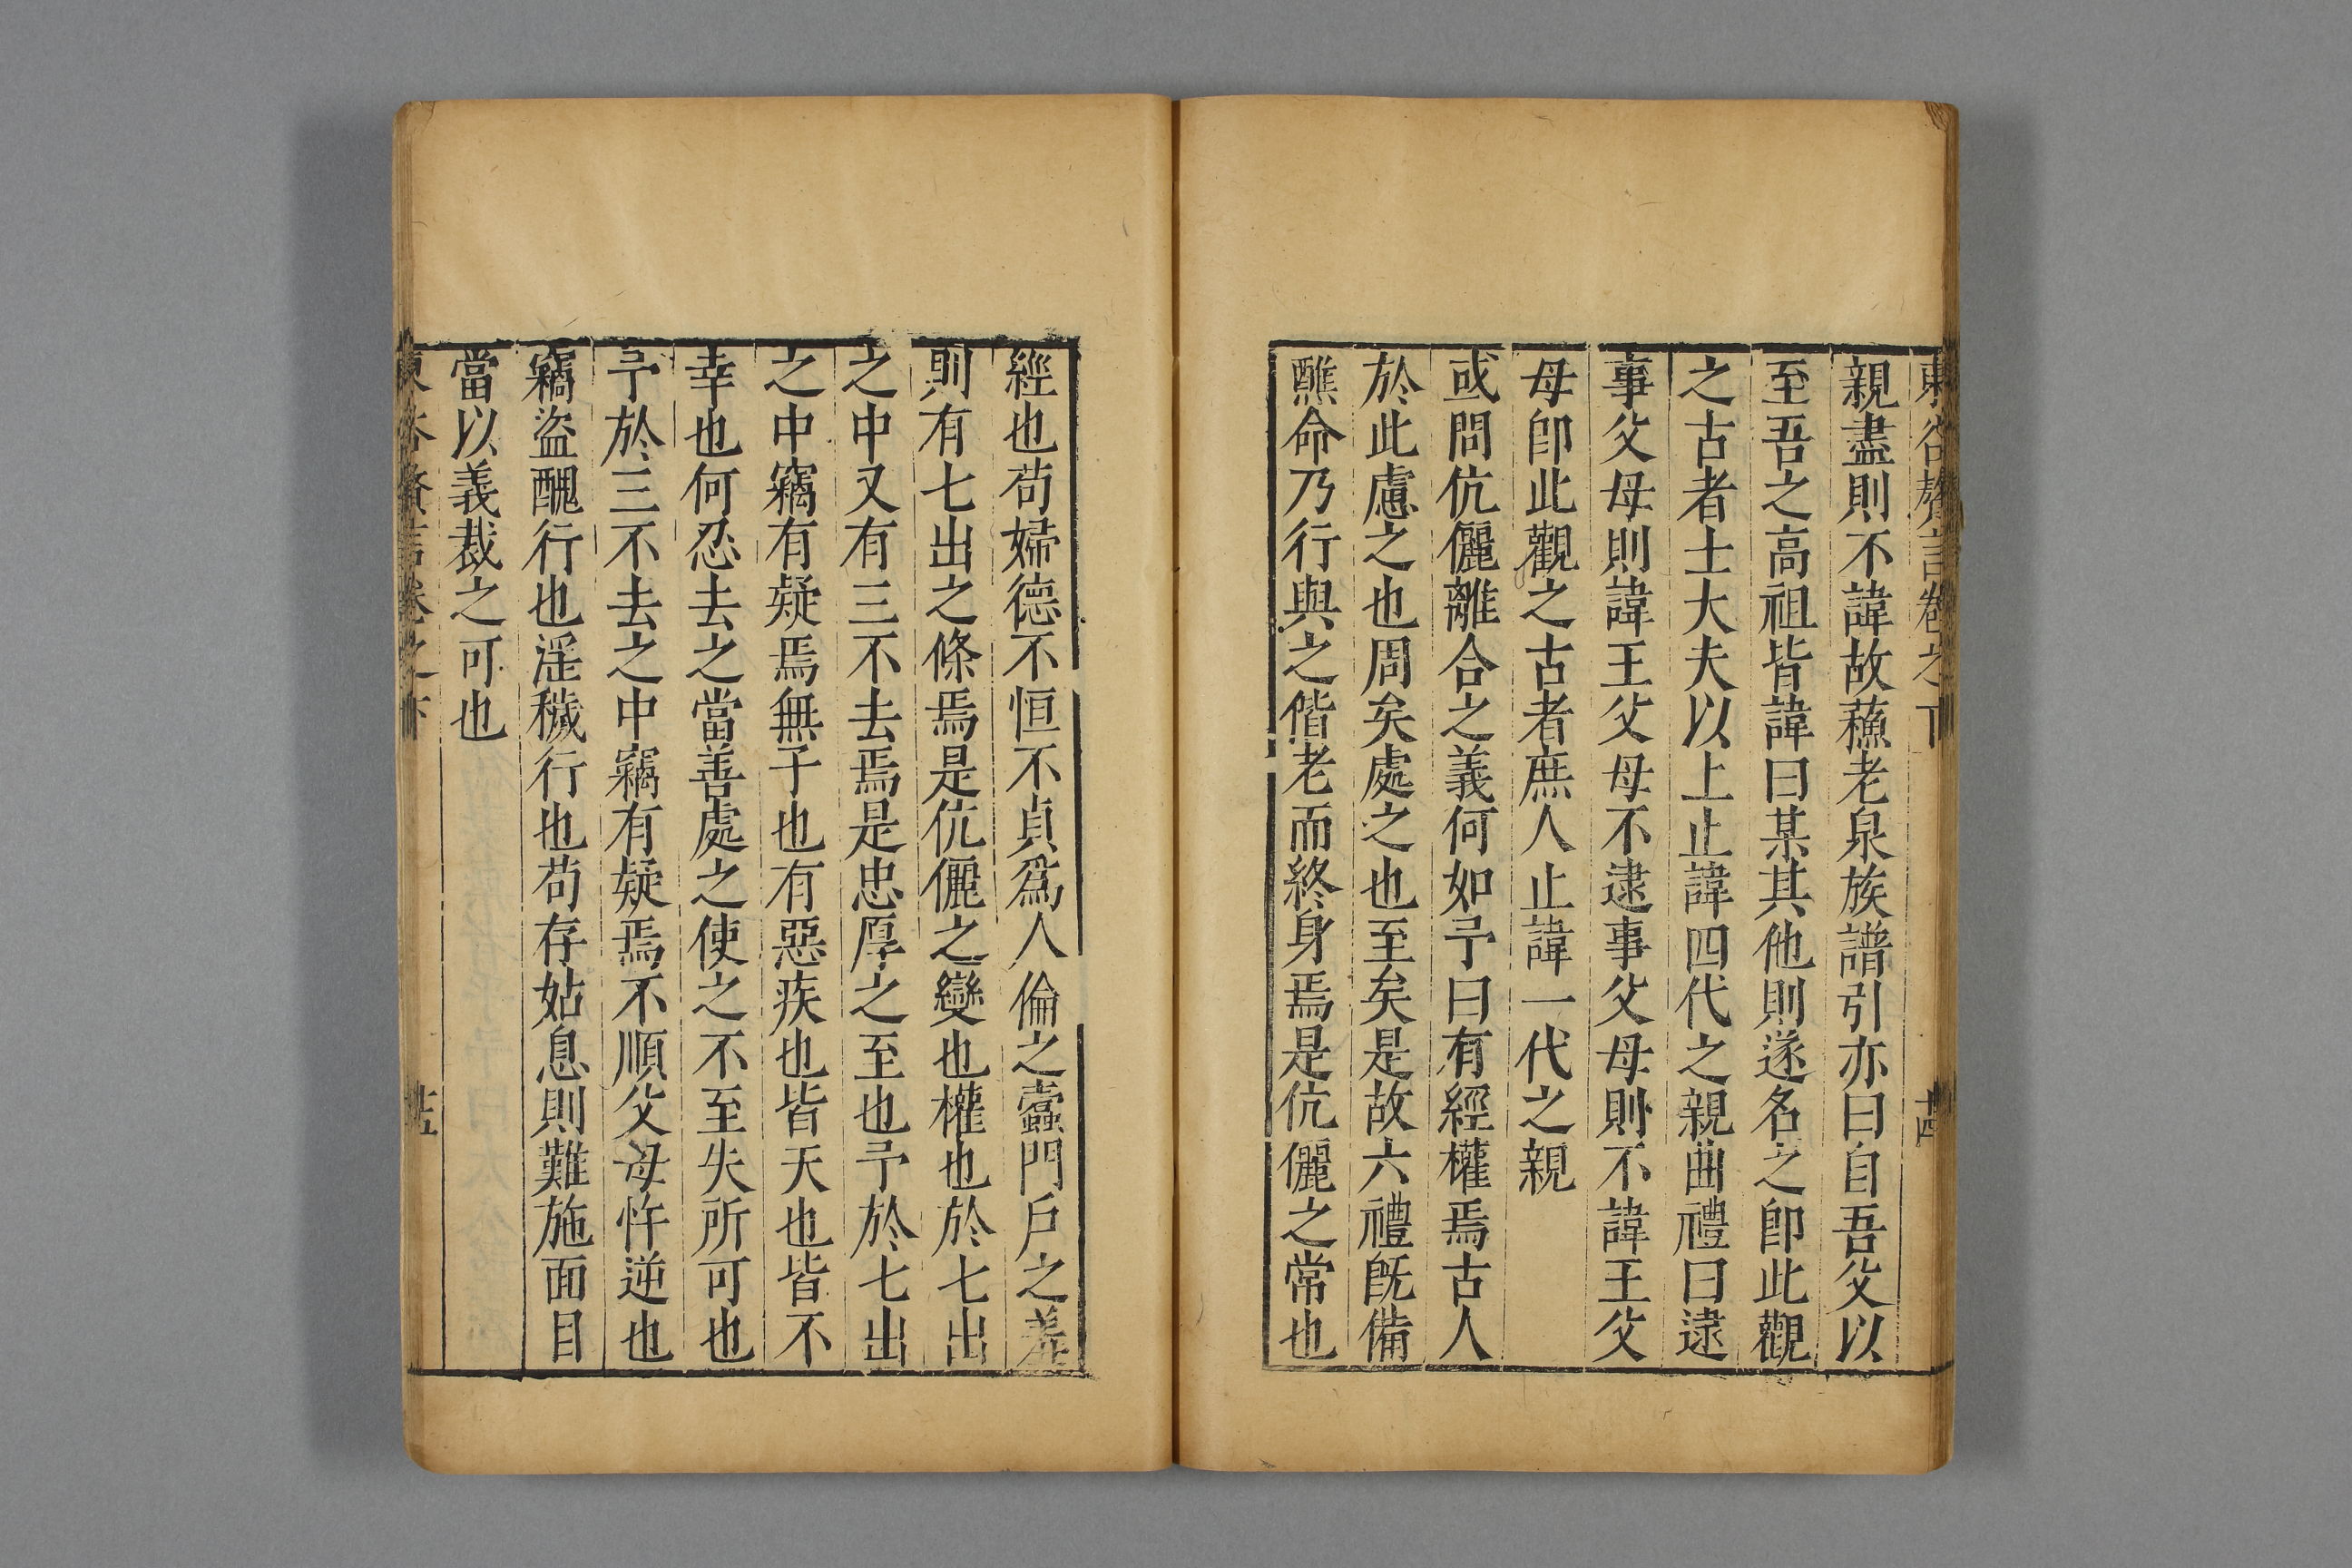 東谷贅言卷之下 十四
親盡則不諱故蘓老泉族譜引亦曰自吾父以
至吾之高祖皆諱曰某其他則遂名之卽此觀
之古者士大夫以上止諱四代之親曲禮曰逮
事父母則諱王父母不逮事父母則不諱王父
母卽此觀之古者庶人止諱一代之親
或問伉儷離合之義何如予曰有經權焉古人
於此慮之也周矣處之也至矣是故六禮旣備
醮命乃行與之偕老而終身焉是伉儷之常也
經也苟婦德不恒不貞爲人倫之蠹門戶之羞
則有七出之條焉是伉儷之變也權也於七出
之中又有三不去焉是忠厚之至也予於七出
之中竊有疑焉無子也有惡疾也皆天也皆不
幸也何忍去之當善處之使之不至失所可也
予於三不去之中竊有疑焉不順父母忤逆也
竊盜醜行也淫穢行也苟存姑息則難施面目
當以義裁之可也
東谷贅言卷之下 十五